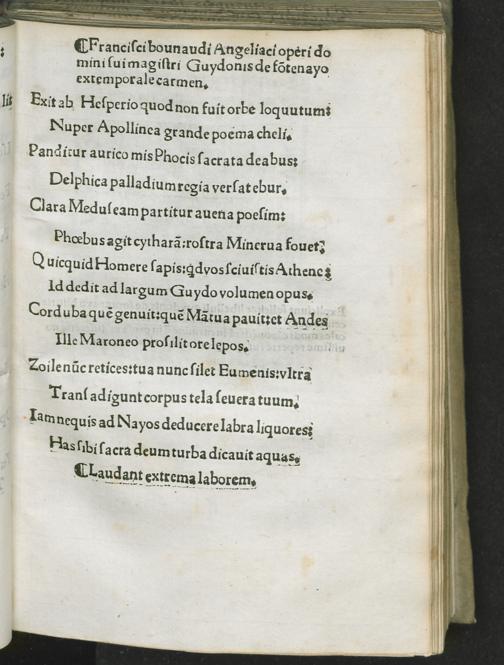 ⸿Francisci bounaudi Angeliaci operi do
mini sui magistri Guydonis de fōtenayo
extemporale carmen.
Exit ab Hesperio quod non fuit orbe loquutum:
Nuper Apollinea grande poema cheli.
Panditur auricomis Phocis sacrata deabus:
Delphica palladium regia versat ebur.
Clara Meduseam partitur auena poesim:
Phœbus agit cytharā: rostra Minerua fouet:
Quicquid Homere sapis: qd vos sciuistis Athene:
Id dedit ad largum Guydo volumen opus.
Corduba quē genuit: quē Mātua pauit: et Andes
Ille Maroneo prosilit ore lepos.
Zoile nūc retices: tua nunc silet Eumenis: vltra
Transadigunt corpus tela seuera tuum.
Iam nequis ad Nayos deducere labra liquores:
Has sibi sacra deum turba dicauit aquas.
⸿Laudant extrema laborem.